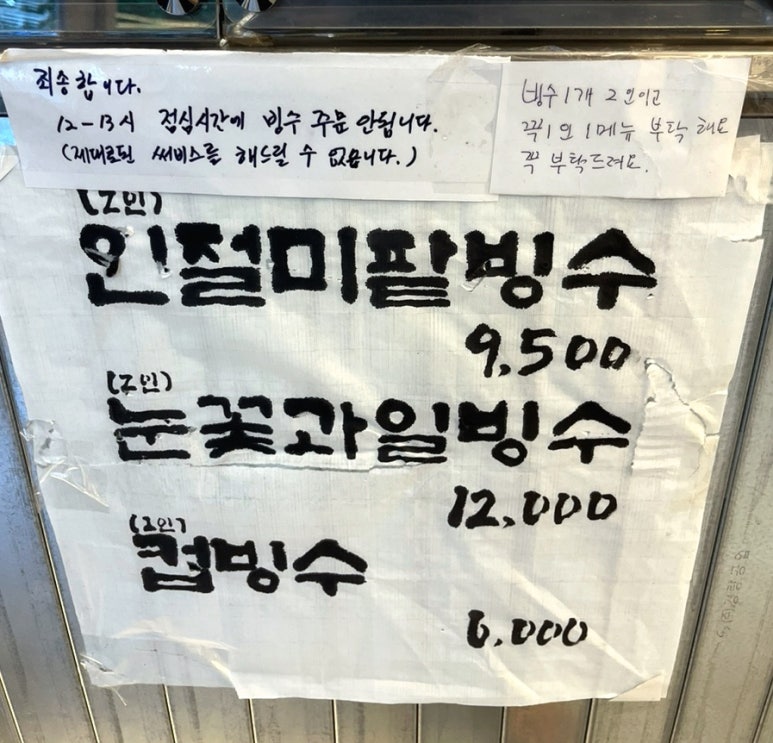 죄송합니다.
12-13시 점심시간에 빙수 주문 안됩니다.
(제대로된 써비스를 해드릴 수 없습니다.)
빙수 1개 2인이고
꼭 1인 1메뉴 부탁해요
꼭 부탁드려요.
(2인)
인절미팥빙수
9,500
(2인)
눈꽃과일빙수
12,000
컵빙수
6,000